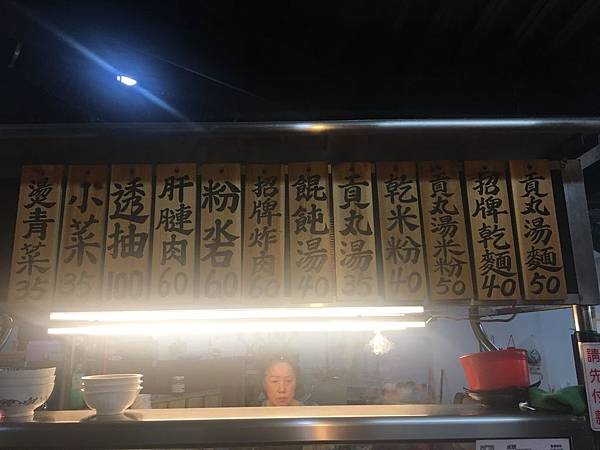 貢丸湯麵 50
招牌乾麵 40
貢丸湯米粉 50
乾米粉 40
貢丸湯 35
餛飩湯 40
招牌炸肉 60
粉 60
肝腱肉 60
透抽 100
小菜 35
燙青菜 35
請先付款